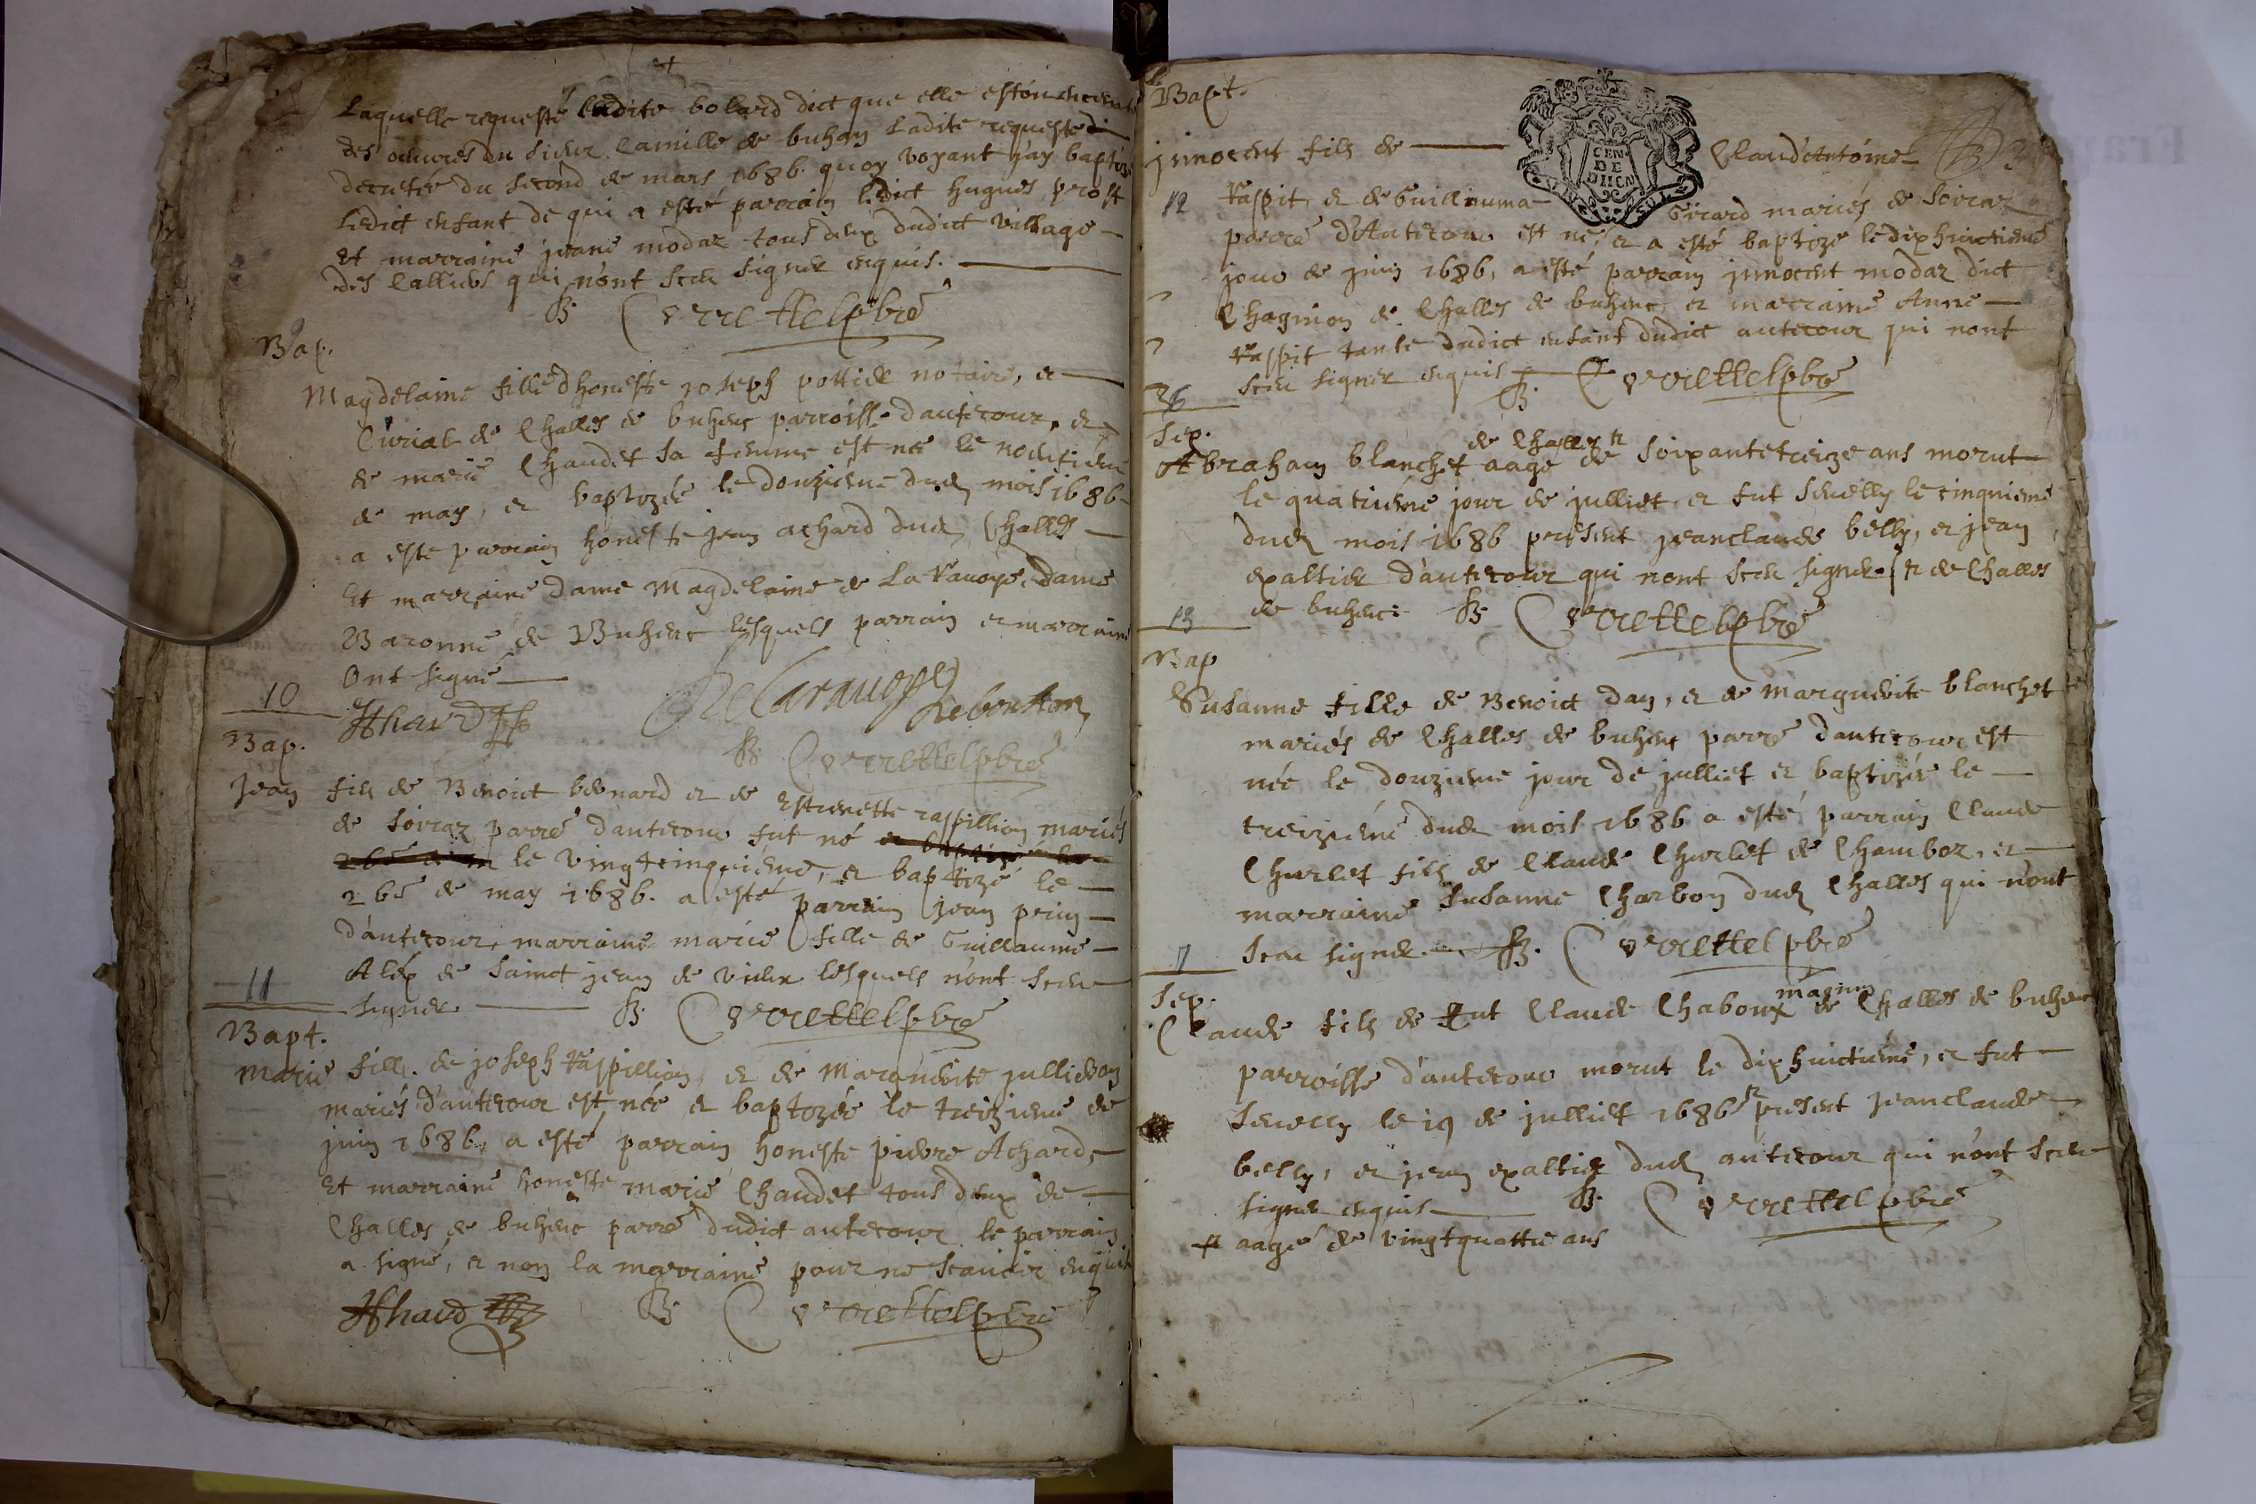 Laquelle requeste ladite bolard dict que elle est
des oeuvres du sieur Camille de buhan ladite requeste
decretée du second de mars 1686. quoy voyant j'ay baptisé
ledict enfant de qui a esté parrain ledict hugues prost
et marraine jeane modaz tous deux dudict village
des Calliers qui n'ont sceu signer enquis.
Bap.
Magdelaine fille d'honeste joseph pottier notaire, et
Curial de Challes de buhenc parroisse d'autecour, et
de marie Chaudet sa femme est née le
de may, et baptizée le douzieme dud mois 1686
a esté parrain honeste jean achard dud Challes
Et marraine dame Magdelaine de La Dame
Baronne de Buhenc lesquels parrain et marraine
Ont signé
10
Bap.
Jean fils de Benoict bernard et de Estienette raspillion mariés
de soiraz parre d'autecour fut né
le vingtcinquieme, et baptizé le
26e de may 1686. a esté parrain jean
d'autecour, marraine marie fille de Guillaume
de sainct jean de lesquels n'ont sceu
signer.
11
Bapt.
Marie fille de joseph raspillion, et de Marguerite jullieron
mariés d'autecour est née et baptizée le treizieme de
juin 1686, a esté parrain honeste pierre Achard,
Et marraine honeste marie Chaudet tous deux de
Challes de buhenc parre dudict autecour le parrain
a signé, et non la marraine pour ne scavoir enquis
Bapt.
jnnocent fils de Claud'Antoine
12
raspit, et de Guillauma Girard mariés de soiraz
parre d'Autecour est né, et a esté baptizé le dixhuictieme
jour de juin 1686, a esté parrain jnnocent modaz dict
Chagnion de Challes de buhenc et marraine Anne
raspit tante dudict enfant dudict autecour qui n'ont
sceu signer enquis
26
Sep.
de Challes
Abraham blanchet aagé de soixantetreize ans morut
le quatrieme jour de julliet et fut sevelly le cinquieme
dud mois 1686 present jeanclaude belly, et jean
expaltier d'autecour qui n'ont sceu signer de Challes
de buhenc
13
Bap
Susanne fille de Benoict Dan, et de Marguerite blanchet
mariés de Challes de buhenc parre d'autecour est
née le douzieme jour de julliet et baptizée le
treizieme dud mois 1686 a esté parrain Claude
Churlet fils de Claude Churlet de Chamboz, et
marraine Susanne Charbon dud Challes qui n'ont
sceu signer.
Sep.
Claude fils de fut Claude Chaboux magnin de Challes de buhenc
parroisse d'autecour morut le dixhuictieme, et fut
sevelly le 19 de julliet 1686 present jeanclaude
belly, et jean expaltier dud autecour qui n'ont sceu
signer enquis
aagé de vingtquattre ans